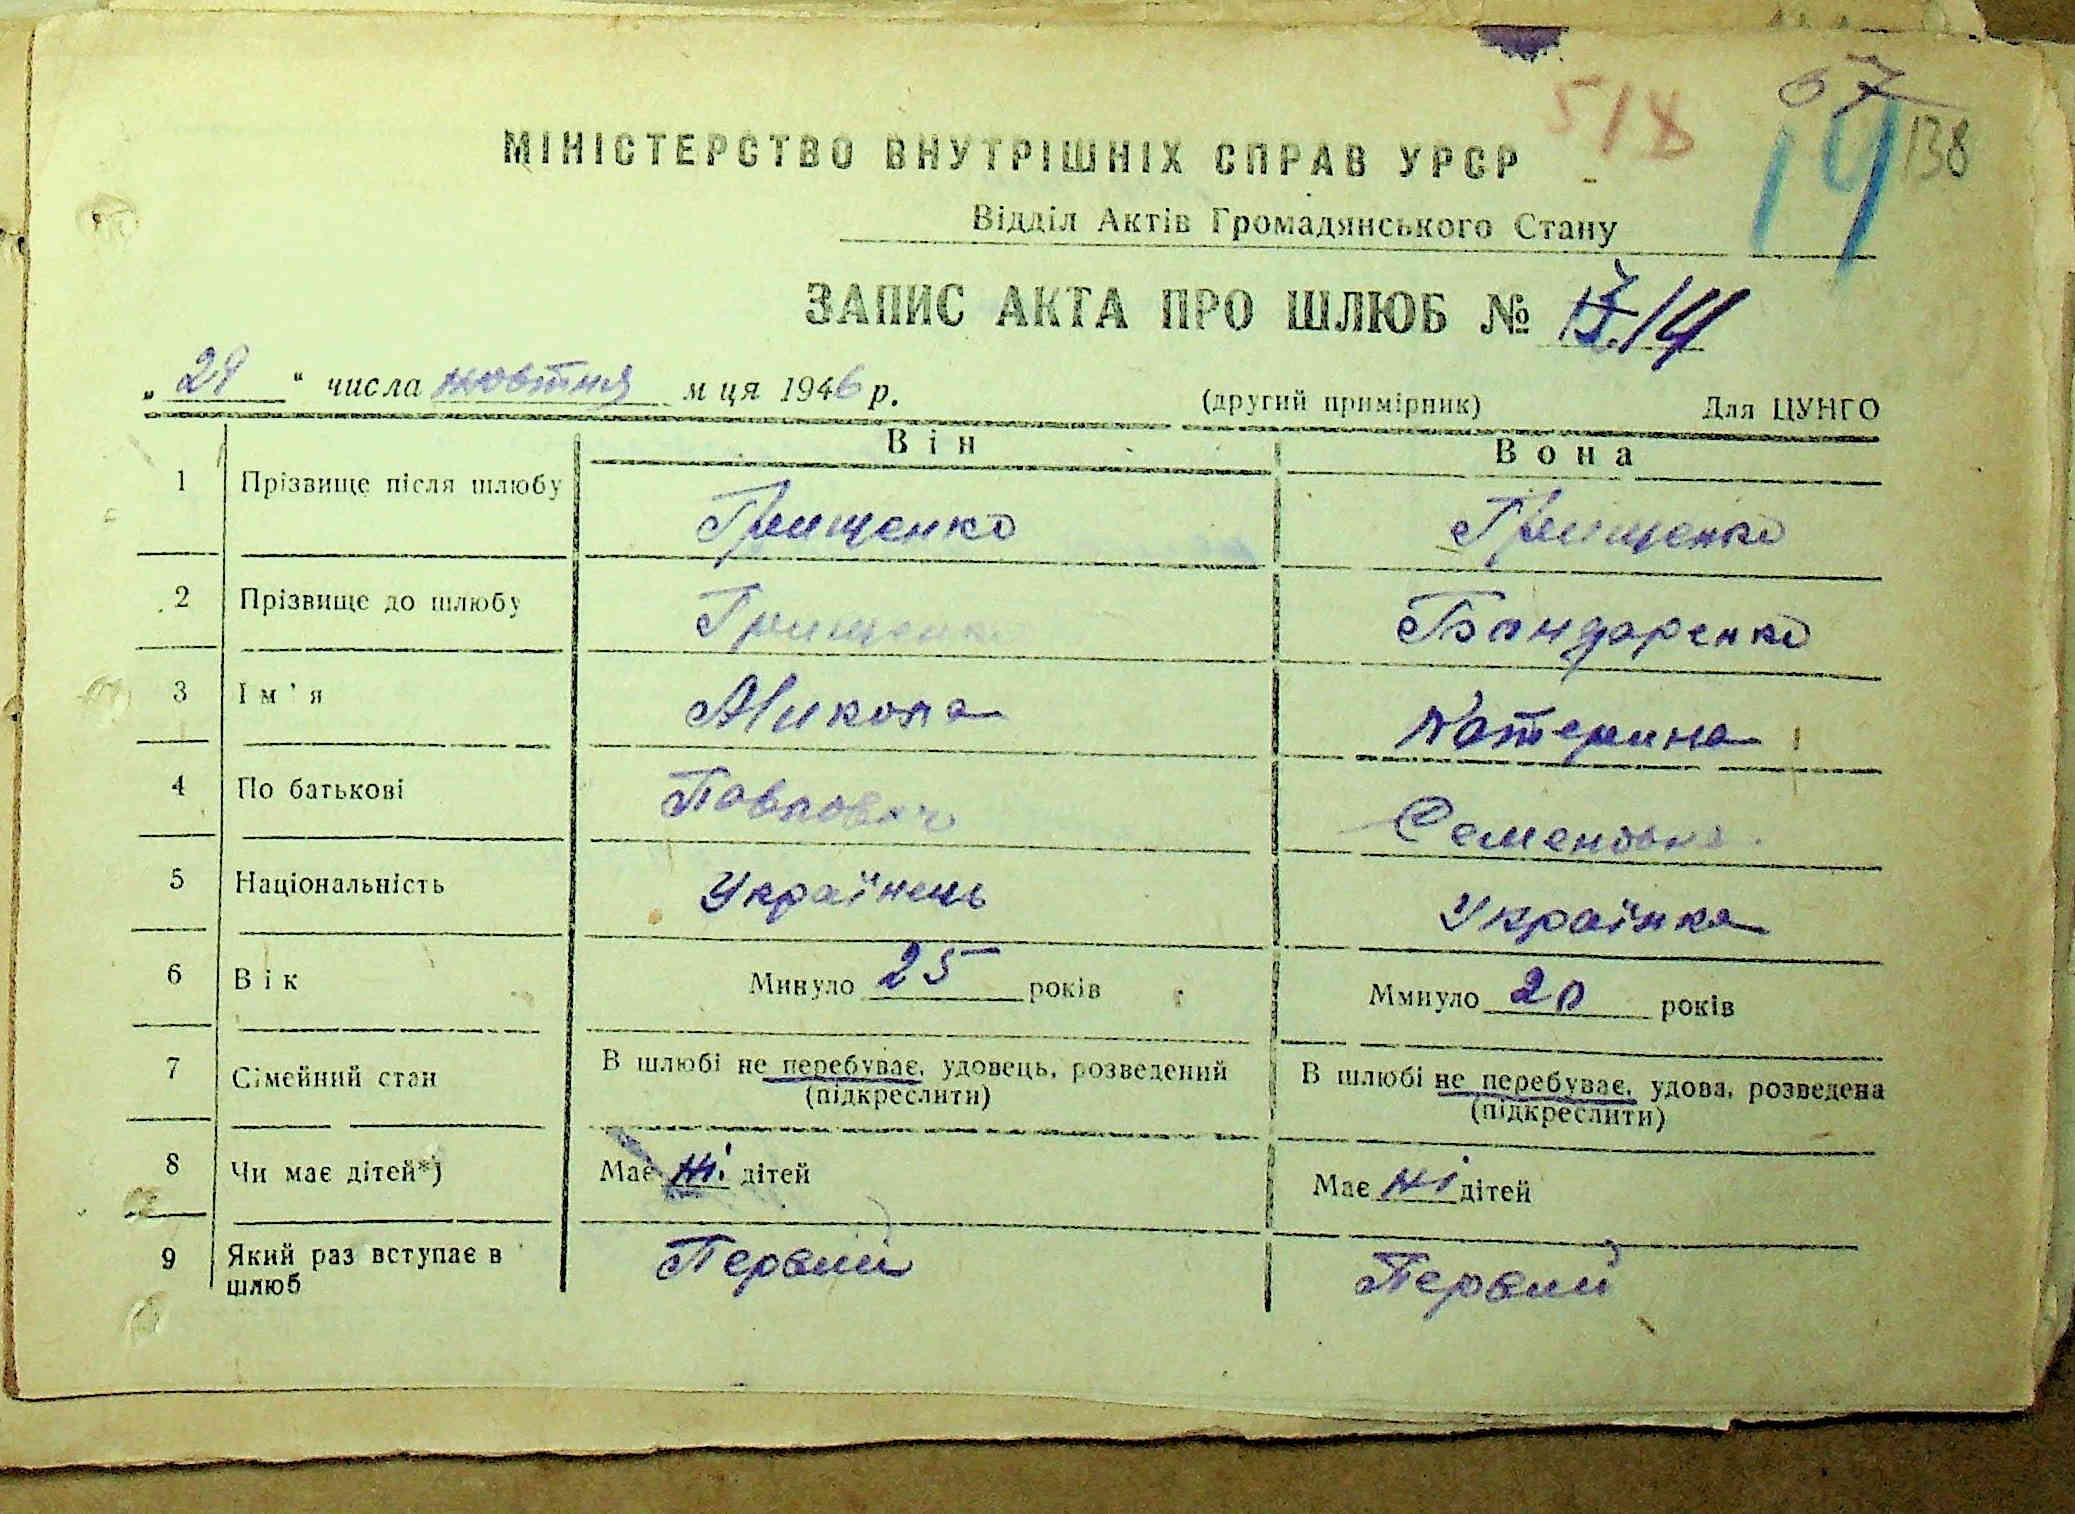 67
518
14
138
МІНІСТЕРСТВО ВНУТРІШНІХ СПРАВ УРСР
Відділ Актів Громадянського Стану
ЗАПИС АКТА ПРО ШЛЮБ № 14
„ 24 “ числа жовтня м ця 1946 р. (другий примірник) Для ЦУНГО
Він Вона
1 Прізвище після шлюбу Грищенко Грищенко
2 Прізвище до шлюбу Грищенко Бондаренко
3 Ім'я Микола Катерина
4 По батькові Павлович Семеновна
5 Національність Українець Українка
6 Вік Минуло 25 років Ммнуло 20 років
7 Сімейний стан В шлюбі не перебуває, удовець, розведений В шлюбі не перебуває, удова, розведена
(підкреслити) (підкреслити)
8 Чи має дітей*) Має ні дітей Має ні дітей
9 Який раз вступає в шлюб Первий Первий